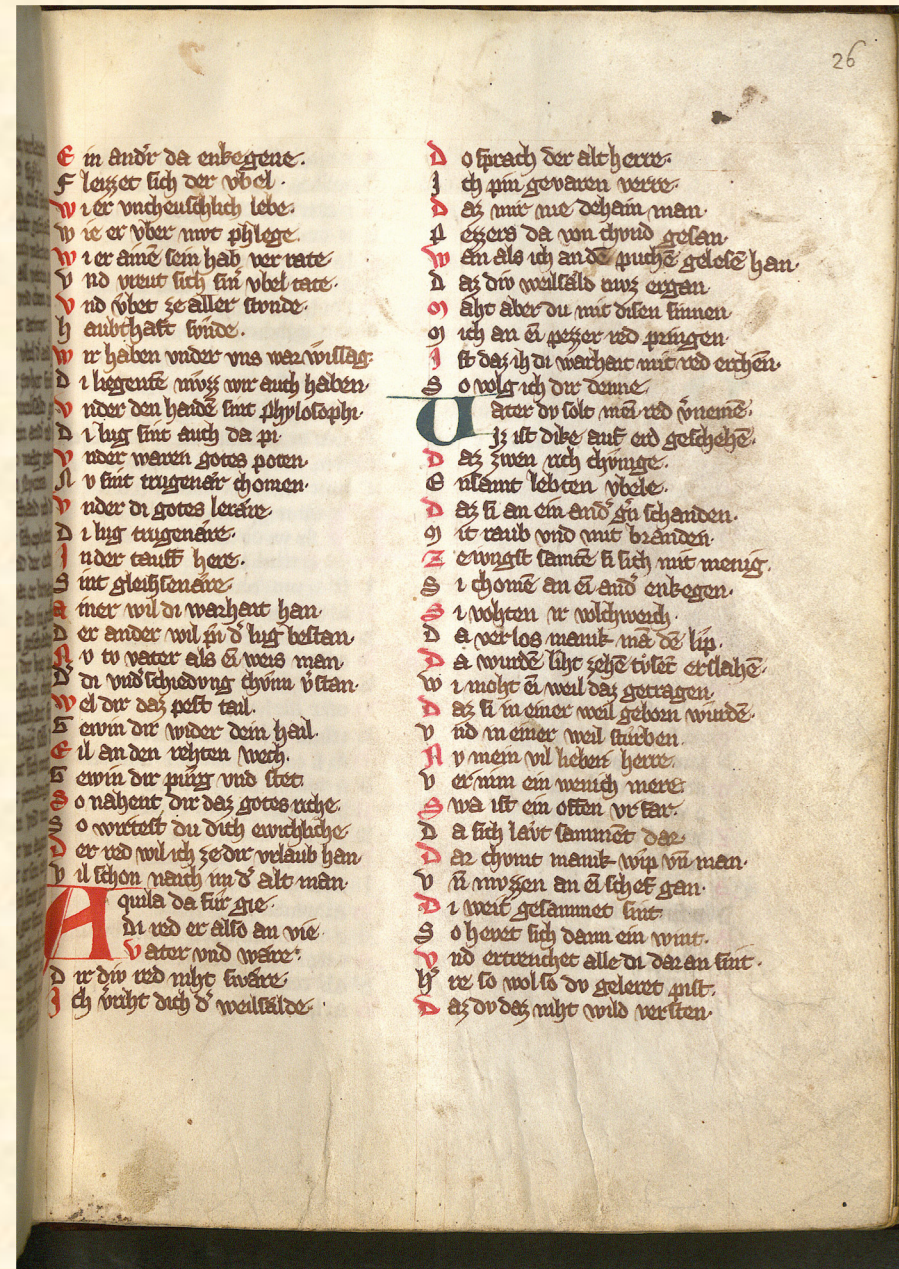 26
E in andr da enkegene·
F leizzet sich der vbel·
W i er vncheuschlich lebe·
W ie er vber mvt phlege·
W i er ainē sein hab ver rate·
V nd vreut sich sinr vbel tate·
V nd vbet ze aller stvnde·
H aubthaft svnde·
W ir haben vnder vns war wissag·
D i liegente mvzz wir auch haben·
V nder den haidē sint phylosophi·
D i lug sint auch da pi·
V nder waren gotes poten·
N v sint trugenar chomen·
V nder di gotes lerare·
D i lug trugenare·
I nder tauff here·
S int gleihsenare·
A iner wil di warhait han·
D er ander wil pi d lug bestan·
N v tv vater als ei weis man
D di vndschiedvng chvnn vstan·
W el dir daz pest tail·
G ewin dir wider dein hail·
E il an den rehten wech·
G ewin dir pürg vnd stet·
S o nahent dir daz gotes riche·
S o wirtest du dich ewichliche·
D er red wil ich ze dir vrlaub han·
V il schon naich im d alt man·
A quila da fur gie·
Di red er also an vie·
Vater vnd ware·
D ir div red niht sware·
I ch vriht dich d weilsalde·
D o sprach der alt herre·
I ch pin gevaren verre·
D az mir nie dehain man·
P ezzers da von chvnd gesan·
W an als ich an dē puchē gelesē han·
D az div weilsald mvz ergan·
M aht aber du mit disen sinnen·
M ich an ei pezzer red pringen·
I st daz ih di warhait mit red erchen·
S o volg ich dir denne·
V ater dv solt mei red vnemē·
Iz ist dike auf erd geschehē·
D az zwen rich chvnige·
E nsamt lebten vbele·
D az si an ein and gn schanden·
M it raub vnd mit branden·
Z e ivngst samtē si sich mit menig·
S i chomē an ei and enkegen·
S i vohten ir volchweich·
D a ver los manik mā dē lip·
D a wurdē liht zehē tvset erslahē·
W i moht ei weil daz getragen·
D az si in einer weil geborn wurdē·
V nd in einer weil sturben·
N v mein vil lieber herre·
V er nim ein wenich mere·
S wa ist ein offen vrfar·
D a sich lävt samment dar·
D ar chvmt manik wip vn man·
V n mvzzen an ei schef gan·
D i weil gesammet sint·
S o hevet sich dann ein wint·
V nd ertrenchet alle di dar an sint·
H re so wol so dv geleret pist·
D az dv daz niht wild versten·